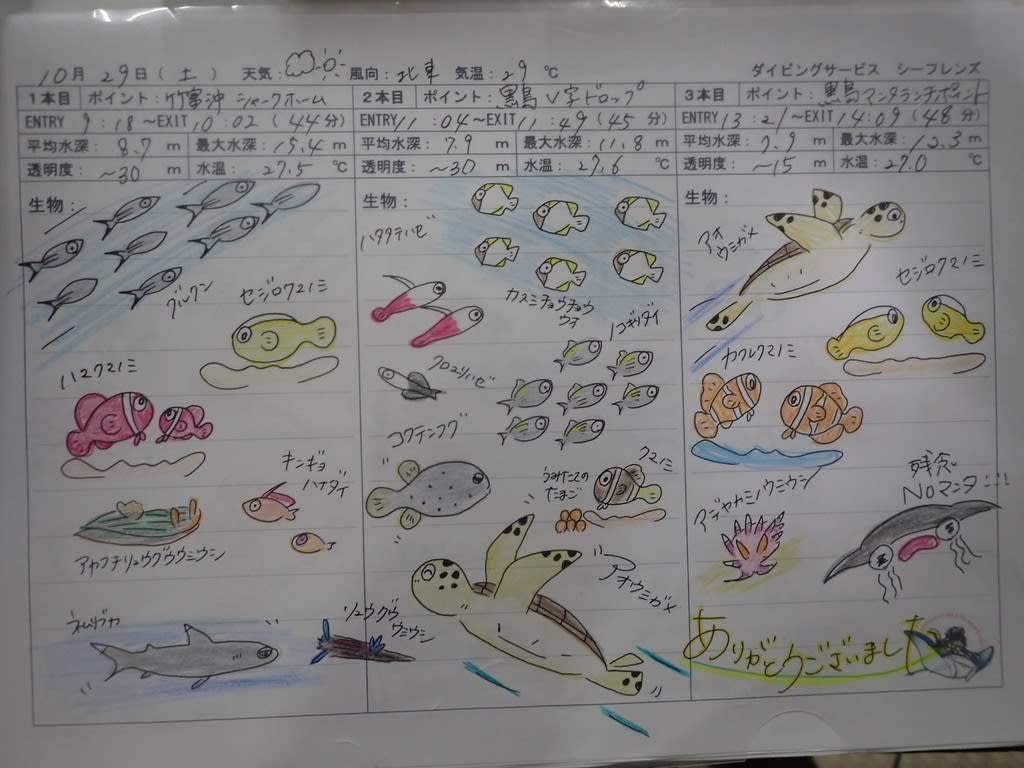 10月 29日(土) 天気: 風向:北東 気温:29 ℃
ダイビングサービス シーフレンズ
1本目 ポイント:竹富沖 シャークホーム
ENTRY 9:18~EXIT 10:02(44分)
平均水深:8.7 m 最大水深:15.4 m
透明度:~30 m 水温:27.5 ℃
生物:
グルクン
セジロクマノミ
ハマクマノミ
キンギョ
ハナダイ
アヤフチリュウグウウミウシ
ネムリブカ
リュウグウ
ウミウシ
2本目 ポイント:黒島 V字ドロップ
ENTRY 11:04~EXIT 11:49(45分)
平均水深:7.9 m 最大水深:11.8 m
透明度:~30 m 水温:27.6 ℃
生物:
ハタタテハゼ
カスミチョウチョウ
ウオ
ノコギリダイ
クロユリハゼ
コクテンフグ
クマノミ
たまご
アオウミガメ
3本目 ポイント:黒島マンタランチポイント
ENTRY 13:21~EXIT 14:09(48分)
平均水深:7.9 m 最大水深:12.3 m
透明度:~15 m 水温:27.0 ℃
生物:
アオ
ウミガメ
セジロクマノミ
カクレクマノミ
アデヤカミノウミウシ
残念
NOマンタ!!!
ありがとうございました